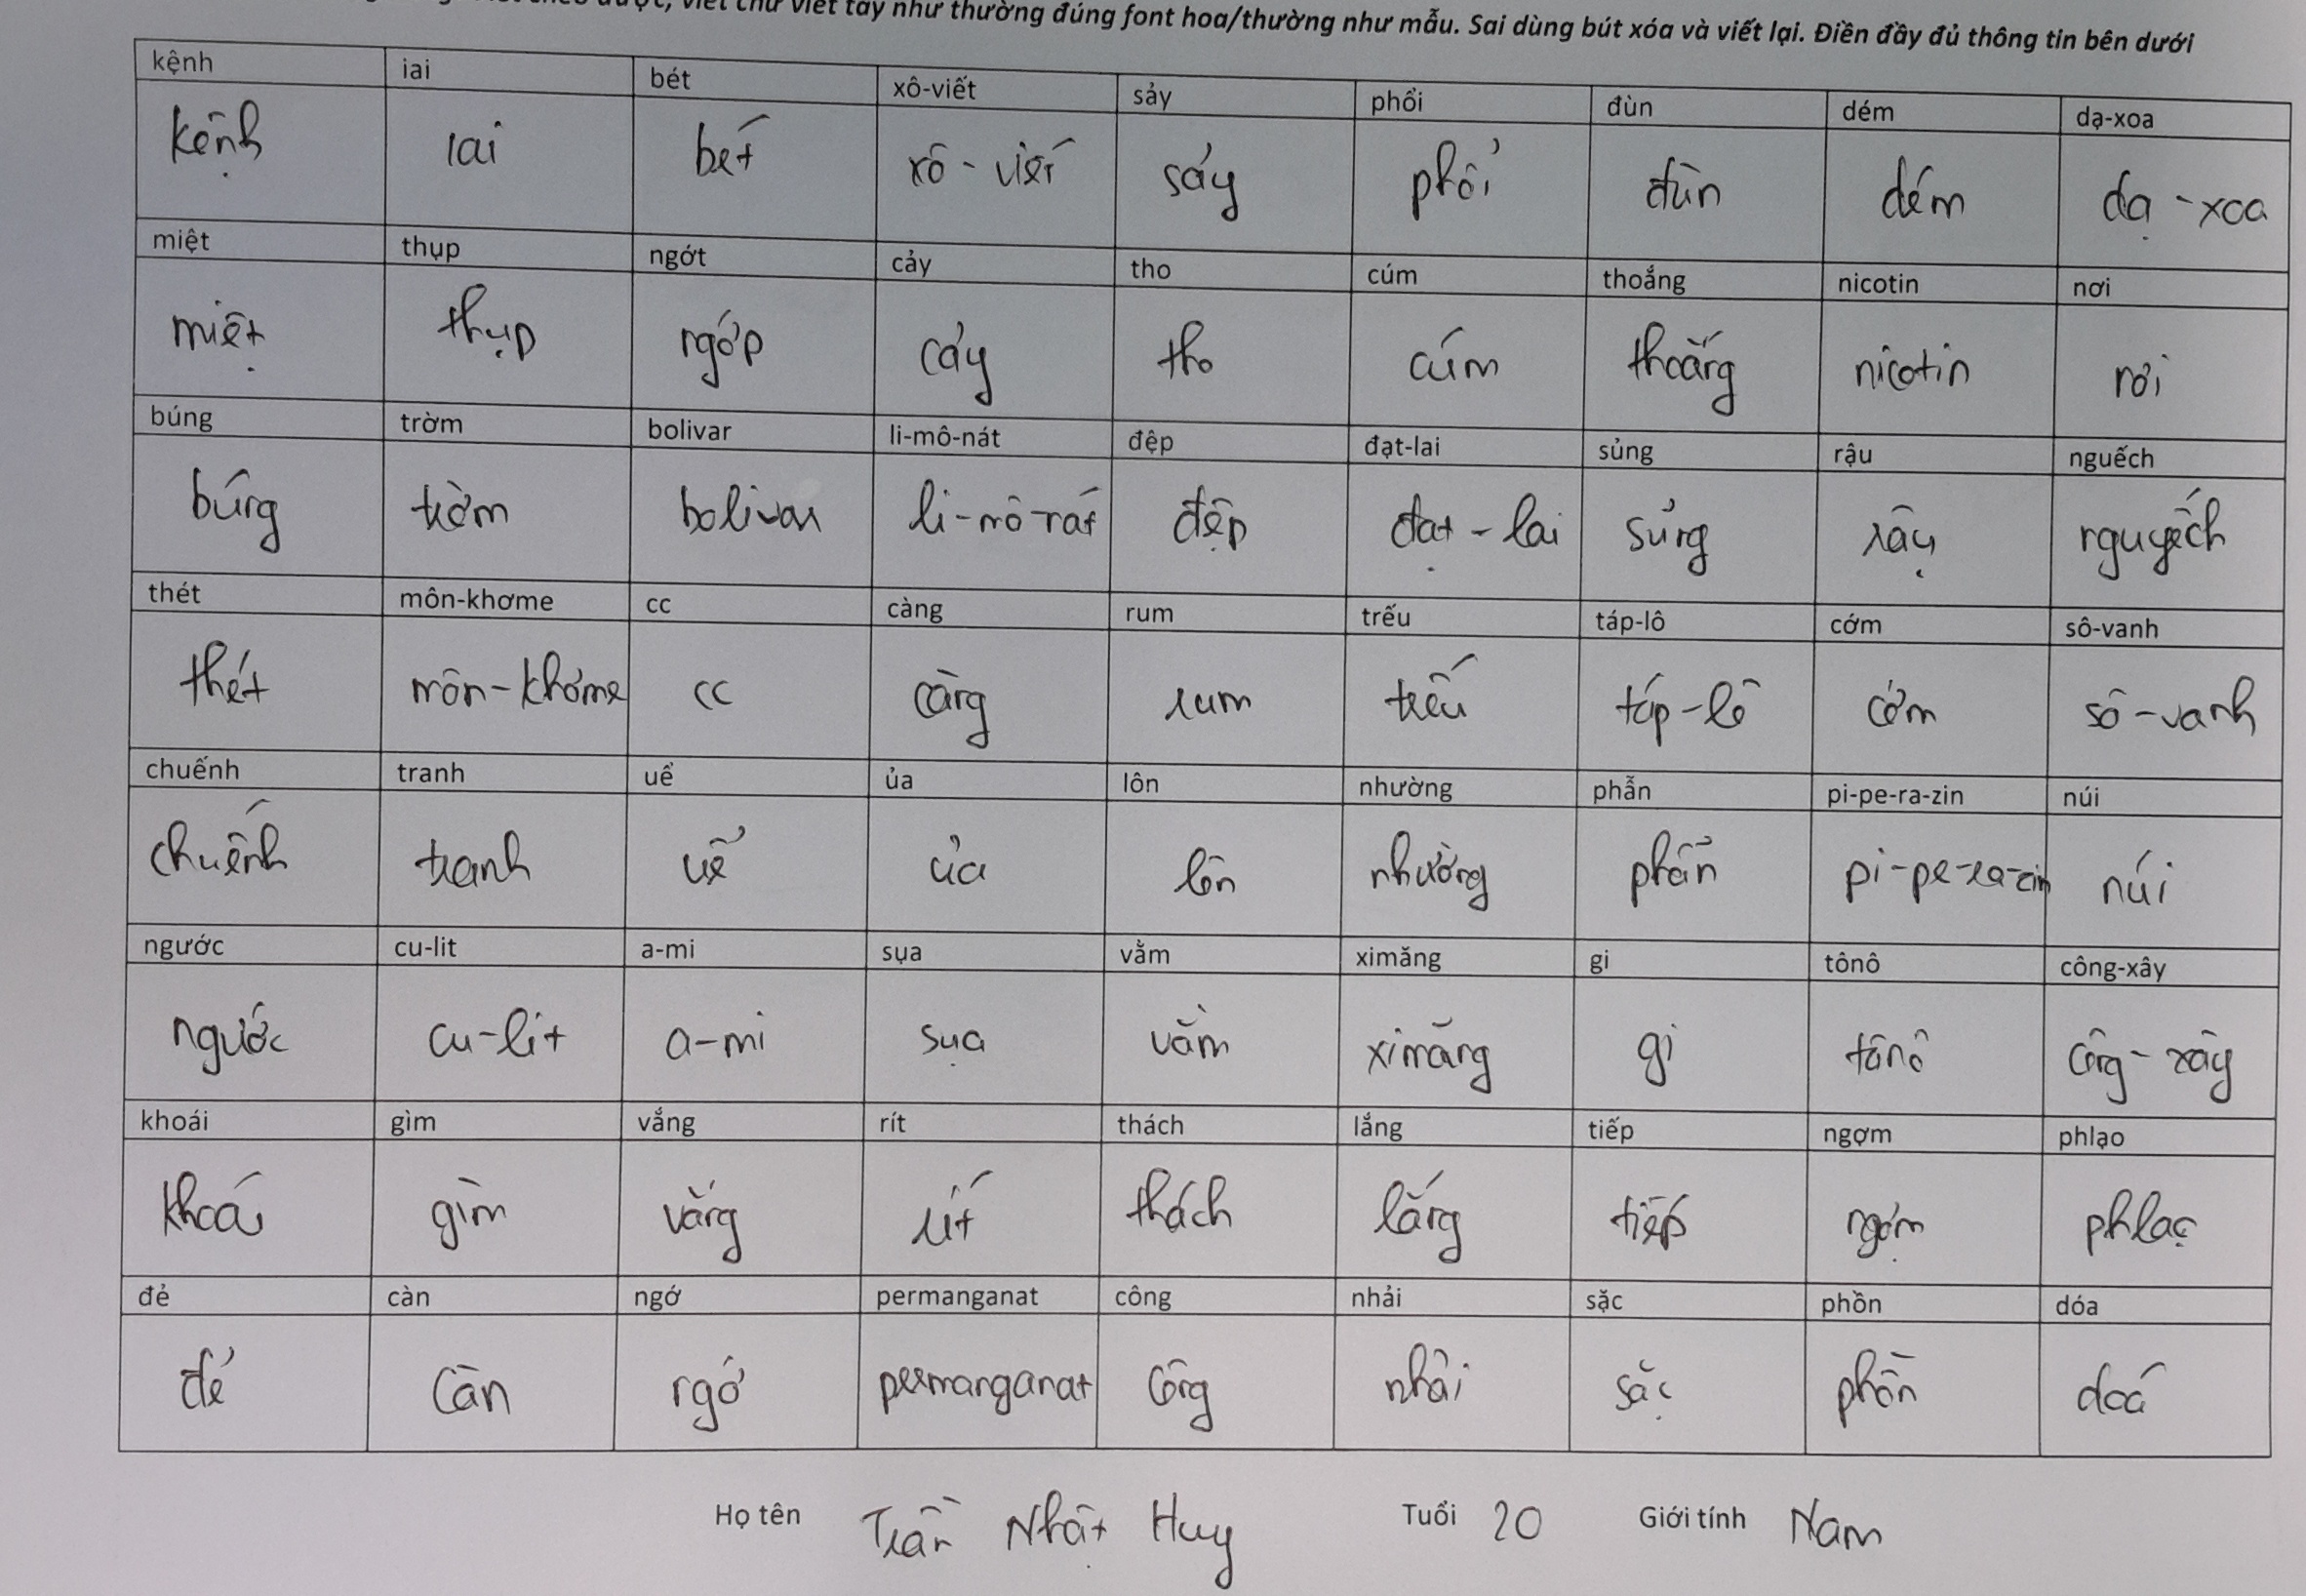 viết chữ viết tay như thường đúng font hoa/thường như mẫu. Sai dùng bút xóa và viết lại. Điền đầy đủ thông tin bên dưới
kệnh iai bét xô-viết sảy phổi đùn dém dạ-xoa
kệnh iai bét xô - viết sảy phổi đùn dém dạ - xoa
miệt thụp ngớt cảy tho cúm thoắng nicotin nơi
miệt thụp ngớp cảy tho cúm thoắng nicotin nơi
búng tròm bolivar li-mô-nát đệp đạt-lai sủng rậu nguếch
búng tròm bolivar li-mô-nát đệp đạt - lai sủng rậu nguyếch
thét môn-khơme cc càng rum trếu táp-lô cớm sô-vanh
thét môn-khơme cc càng rum trếu táp-lô cớm sô-vanh
chuếnh tranh uể ủa lôn nhường phẫn pi-pe-ra-zin núi
chuếnh tranh uể ủa lôn nhường phẫn pi-pe-ra-zin núi
ngước cu-lit a-mi sụa vằm ximăng gi tônô công-xây
ngước cu-lit a-mi sụa vằm ximăng gi tônô công-xây
khoái gìm vắng rít thách lắng tiếp ngợm phlạo
khoái gìm vắng rít thách lắng tiếp ngợm phlạo
đẻ càn ngớ permanganat công nhải sặc phồn dóa
đẻ càn ngớ permanganat công nhải sặc phồn doá
Họ tên Trần Nhật Huy Tuổi 20 Giới tính Nam